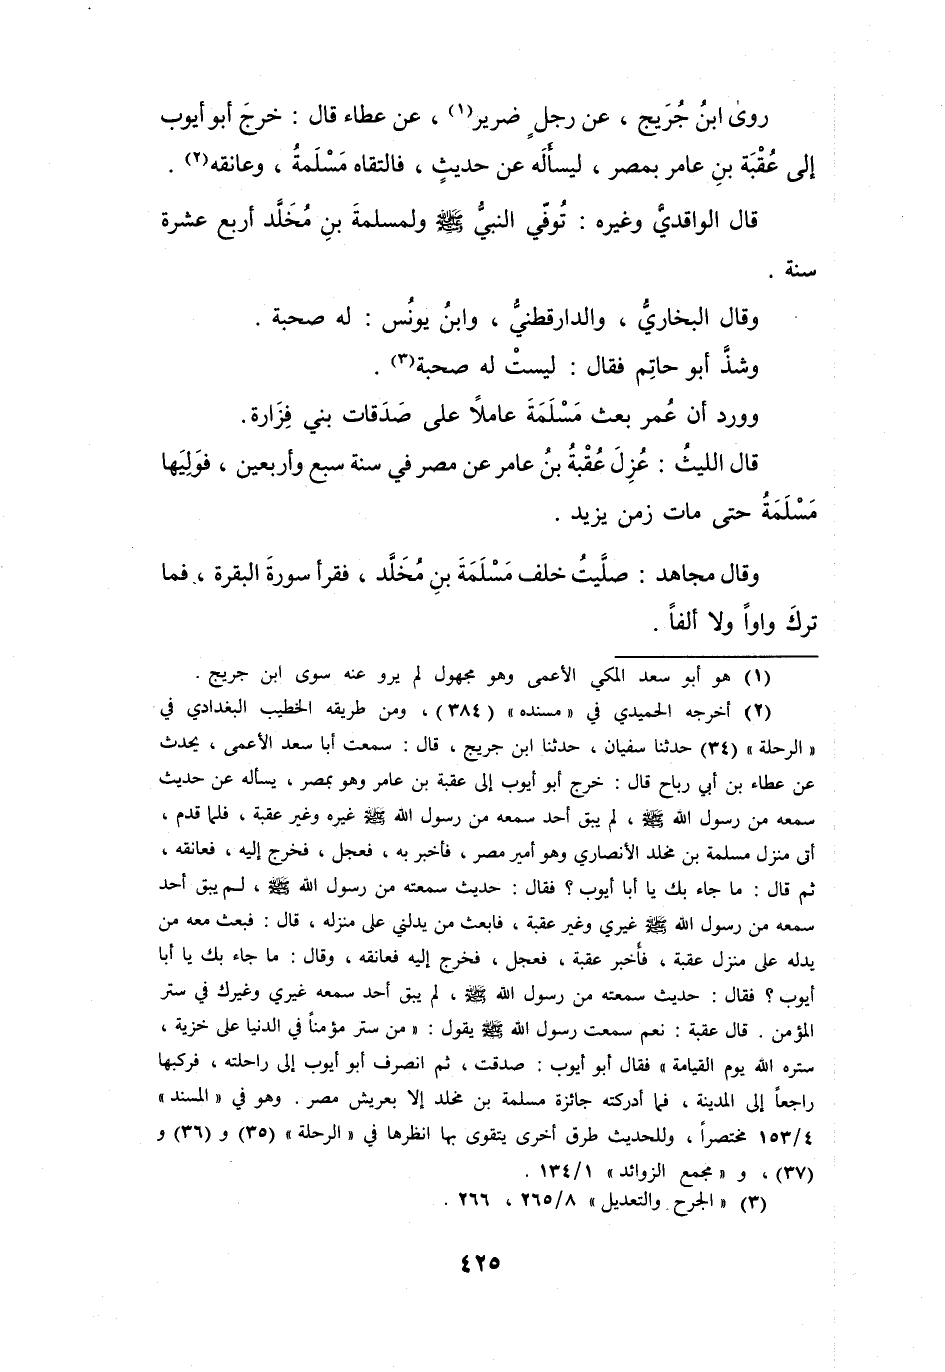 روىٰ ابنُ جُرَيج ، عن رجلٍ ضرير(١) ، عن عطاء قال : خرجَ أبو أيوب
إلى عُقْبَة بنِ عامر بمصر ، ليسأَله عن حديثٍ ، فالتقاه مَسْلَمةُ ، وعانقه(٢) .
قال الواقديُّ وغيره : تُوفّي النبيُّ ﷺ ولمسلمةَ بنِ مُخَلَّد أربع عشرة
سنة .
وقال البخاريُّ ، والدارقطنيُّ ، وابنُ يونُس : له صحبة .
وشذَّ أبو حاتِم فقال : ليستْ له صحبة(٣) .
وورد أن عُمر بعث مَسْلَمَةَ عاملاً على صَدَقات بني فِزَارة.
قال الليثُ : عُزِلَ عُقْبةُ بنُ عامر عن مصر في سنة سبع وأربعين ، فوَلِيَها
مَسْلَمَةُ حتى مات زمن يزيد .
وقال مجاهد : صلَّيتُ خلف مَسْلَمَةَ بنِ مُخَلَّد ، فقرأ سورةَ البقرة ، فما
تركَ واواً ولا ألفاً .
(١) هو أبو سعد المكي الأعمى وهو مجهول لم يرو عنه سوى ابن جريج .
(٢) أخرجه الحميدي في « مسنده » (٣٨٤) ، ومن طريقه الخطيب البغدادي في
« الرحلة » (٣٤) حدثنا سفيان ، حدثنا ابن جريج ، قال : سمعت أبا سعد الأعمى ، يحدث
عن عطاء بن أبي رباح قال : خرج أبو أيوب إلى عقبة بن عامر وهو بمصر ، يسأله عن حديث
سمعه من رسول الله ﷺ ، لم يبق أحد سمعه من رسول الله ﷺ غيره وغير عقبة ، فلما قدم ،
أتى منزل مسلمة بن مخلد الأنصاري وهو أمير مصر ، فأخبر به ، فعجل ، فخرج إليه ، فعانقه ،
ثم قال : ما جاء بك يا أبا أيوب ؟ فقال : حديث سمعته من رسول الله ﷺ ، لم يبق أحد
سمعه من رسول الله ﷺ غيري وغير عقبة ، فابعث من يدلني على منزله ، قال : فبعث معه من
يدله على منزل عقبة ، فأُخبر عقبة ، فعجل ، فخرج إليه فعانقه ، وقال : ما جاء بك يا أبا
أيوب ؟ فقال : حديث سمعته من رسول الله ﷺ ، لم يبق أحد سمعه غيري وغيرك في ستر
المؤمن . قال عقبة : نعم سمعت رسول الله ﷺ يقول : « من ستر مؤمناً في الدنيا على خزية ،
ستره الله يوم القيامة » فقال أبو أيوب : صدقت ، ثم انصرف أبو أيوب إلى راحلته ، فركبها
راجعاً إلى المدينة ، فما أدركته جائزة مسلمة بن مخلد إلا بعريش مصر . وهو في « المسند »
١٥٣/٤ مختصراً ، وللحديث طرق أخرى يتقوى بها انظرها في « الرحلة » (٣٥) و (٣٦) و
(٣٧) ، و « مجمع الزوائد » ١٣٤/١ .
(٣) « الجرح والتعديل » ٢٦٥/٨ ، ٢٦٦ .
٤٢٥